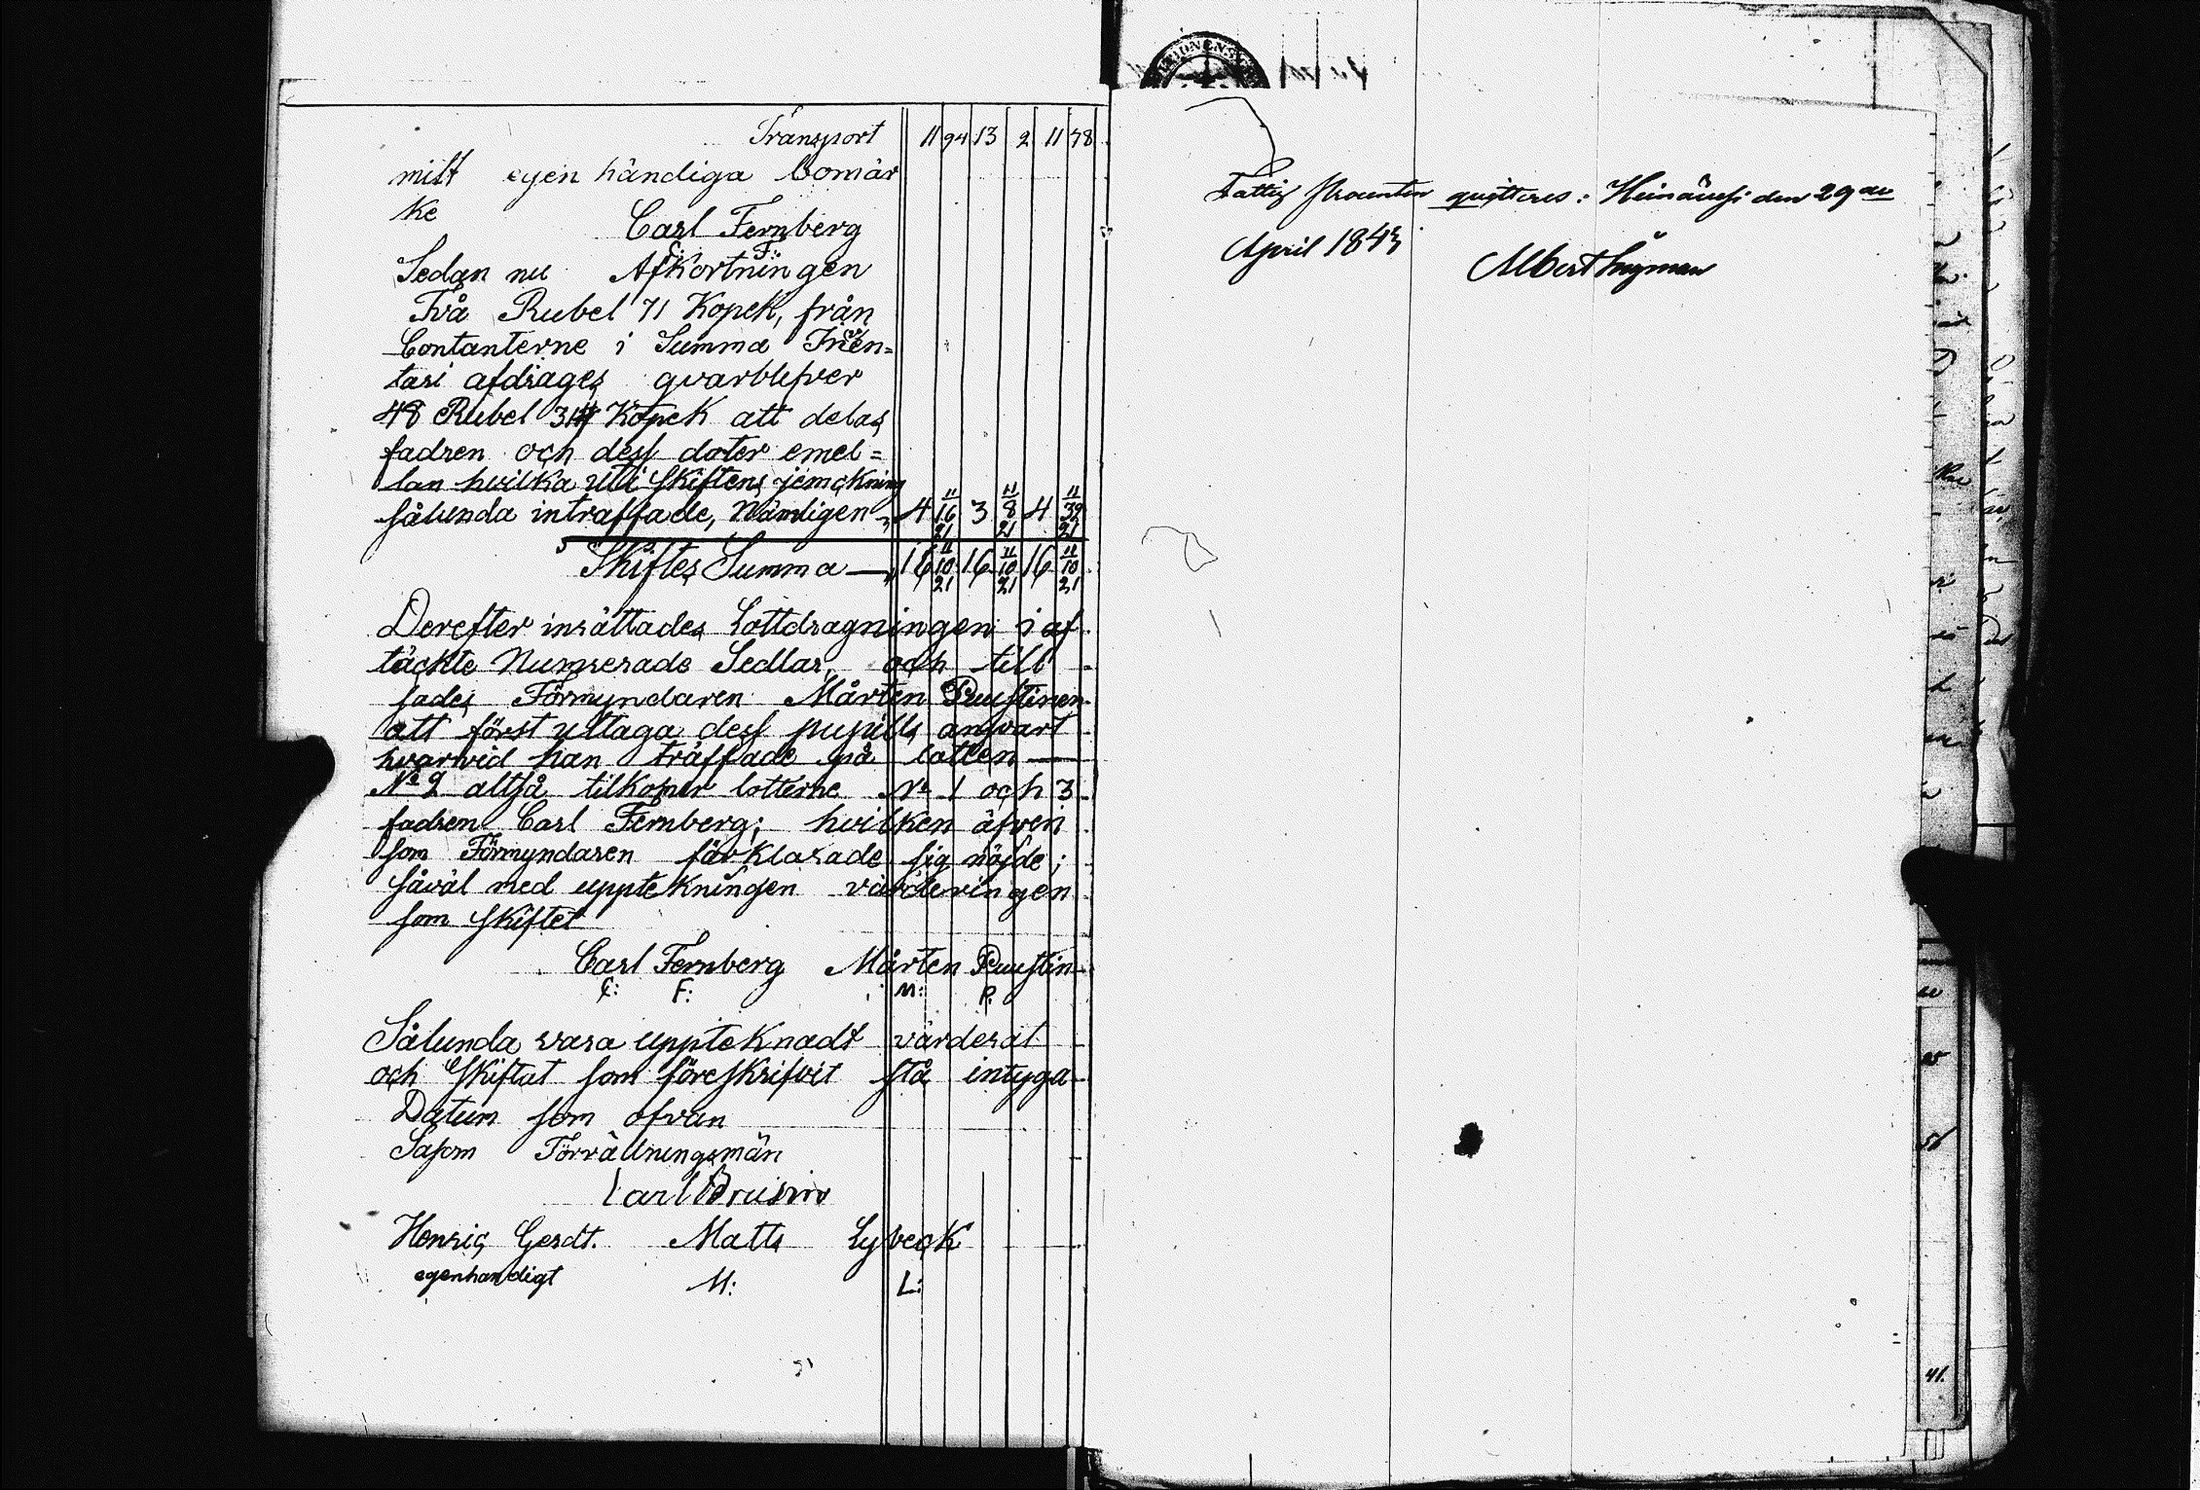 Transport 11 94 13 2 11 78
mitt egen händiga bomär
ke
Carl Fernberg
C: F:
Sedan nu Afkortningen
Två Rubel 71 Kopek, från
Contanterne i Summa Inven=
tari afdrages qvarblifver
48 Rubel 31 Kopek att delas
fadren och dess doter emel=
lan hvilka uti Skiftens jemckning
sålunda intraffade, Nämligen 4 11 16/21 3 11 8/21 4 11 39/21
Skiftes Summa 16 11 10/21 16 11 10/21 16 11 10/21
Derefter inrättades Lottdragningen i af
täckte Numrerade Sedlar, och till
sades Förmyndaren Mårten Puustinen
att först uttaga dess pupills answart
hvarvid han träffade på lotten —
No 2 altså tilkomer lotterne No 1 och 3
fadren Carl Fernberg; hvilken äfven
som Förmyndaren förklarade sig nöjde;
såväl med uppteckningen värderingen
som skiftet
Carl Fernberg Mårten Puustin
C: F: M: P.
Sålunda vara uppteknadt värderat
och Skiftat som föreskrifvit stå intyga
Datum som ofvan
Såsom Förrättningsmän
Carl Brusiin
Henric Gerdt. Matts Lybeck
egenhandigt M: L:
Fattig Procenten quitteres: Heinävesi den 29de
April 1843
Albert Ingman
41.